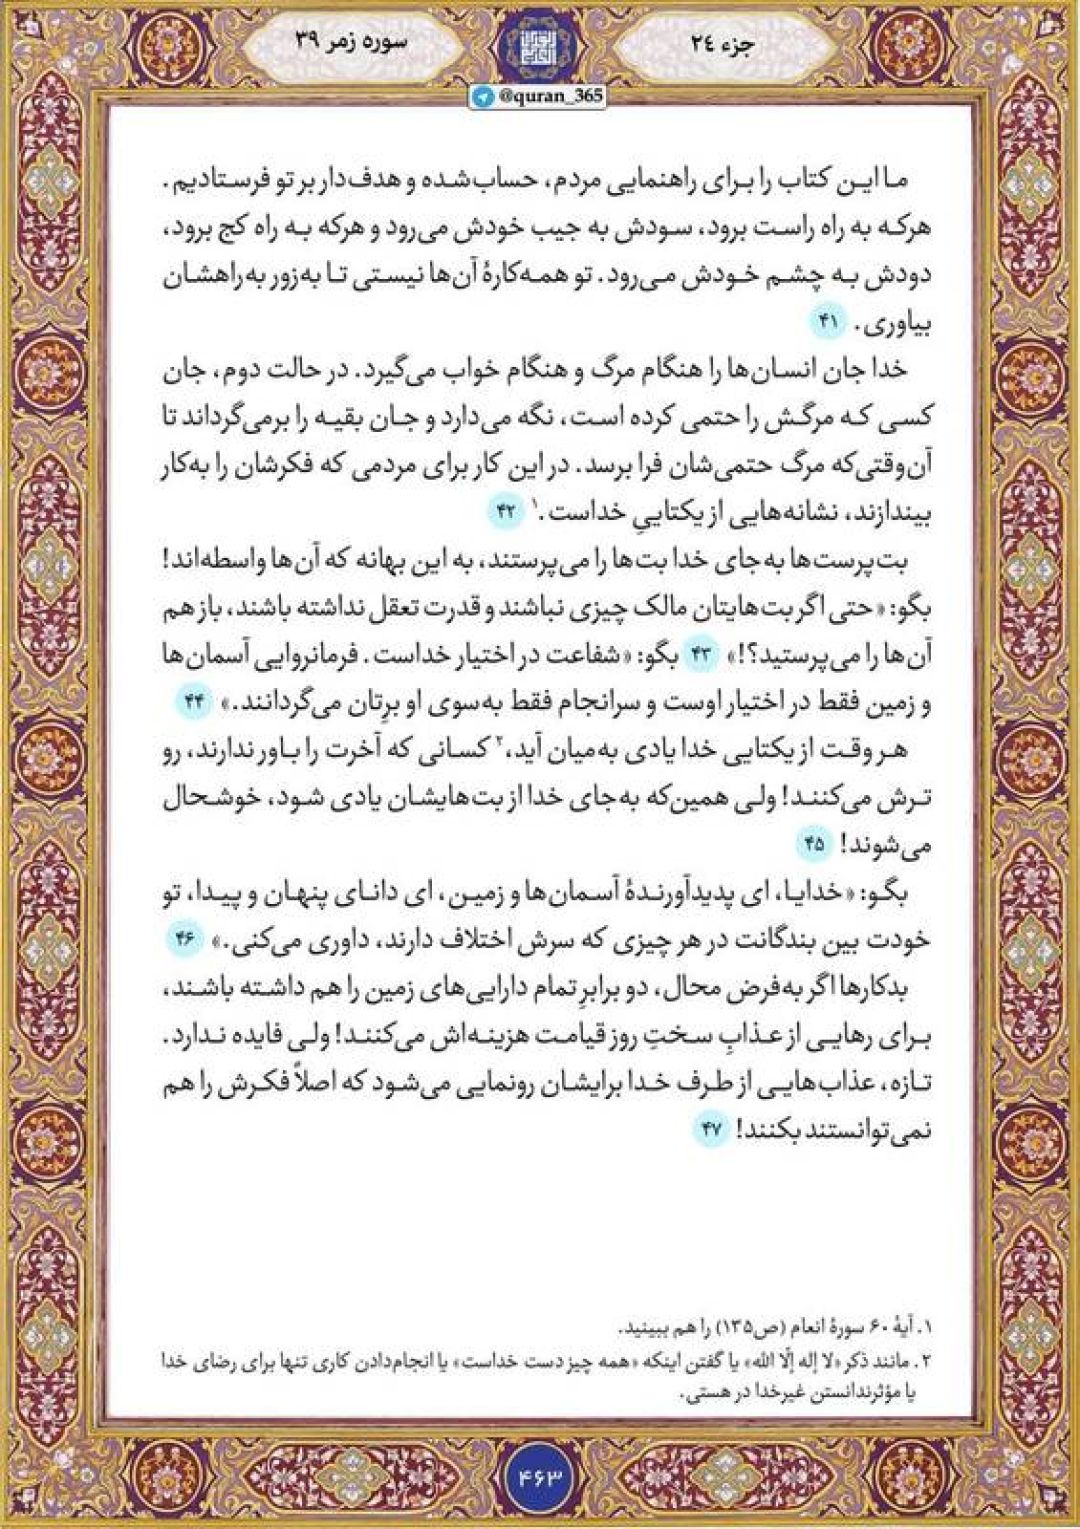 جزء ۲٤
سوره زمر ۳۹
@quran_365
ما این کتاب را برای راهنمایی مردم، حساب‌شده و هدف‌دار بر تو فرستادیم.
هرکه به راه راست برود، سودش به جیب خودش می‌رود و هرکه به راه کج برود،
دودش به چشم خودش می‌رود. تو همه‌کارهٔ آن‌ها نیستی تا به‌زور به‌راهشان
بیاوری. ۴۱
خدا جان انسان‌ها را هنگام مرگ و هنگام خواب می‌گیرد. در حالت دوم، جان
کسی که مرگش را حتمی کرده است، نگه می‌دارد و جان بقیه را برمی‌گرداند تا
آن‌وقتی‌که مرگ حتمی‌شان فرا برسد. در این کار برای مردمی که فکرشان را به‌کار
بیندازند، نشانه‌هایی از یکتاییِ خداست.۱ ۴۲
بت‌پرست‌ها به‌جای خدا بت‌ها را می‌پرستند، به این بهانه که آن‌ها واسطه‌اند!
بگو: «حتی اگر بت‌هایتان مالک چیزی نباشند و قدرت تعقل نداشته باشند، باز هم
آن‌ها را می‌پرستید؟!» ۴۳ بگو: «شفاعت در اختیار خداست. فرمانروایی آسمان‌ها
و زمین فقط در اختیار اوست و سرانجام فقط به‌سوی او برِتان می‌گردانند.» ۴۴
هر وقت از یکتایی خدا یادی به‌میان آید،۲ کسانی که آخرت را باور ندارند، رو
ترش می‌کنند! ولی همین‌که به‌جای خدا از بت‌هایشان یادی شود، خوشحال
می‌شوند! ۴۵
بگو: «خدایا، ای پدیدآورندهٔ آسمان‌ها و زمین، ای دانای پنهان و پیدا، تو
خودت بین بندگانت در هر چیزی که سرش اختلاف دارند، داوری می‌کنی.» ۴۶
بدکارها اگر به‌فرض محال، دو برابرِ تمام دارایی‌های زمین را هم داشته باشند،
برای رهایی از عذابِ سختِ روز قیامت هزینه‌اش می‌کنند! ولی فایده ندارد.
تازه، عذاب‌هایی از طرف خدا برایشان رونمایی می‌شود که اصلاً فکرش را هم
نمی‌توانستند بکنند! ۴۷
۱. آیهٔ ۶۰ سورهٔ انعام (ص۱۳۵) را هم ببینید.
۲. مانند ذکر «لا إله إلّا الله» یا گفتن اینکه «همه چیز دست خداست» یا انجام‌دادن کاری تنها برای رضای خدا
یا مؤثرندانستن غیرخدا در هستی.
۴۶۳